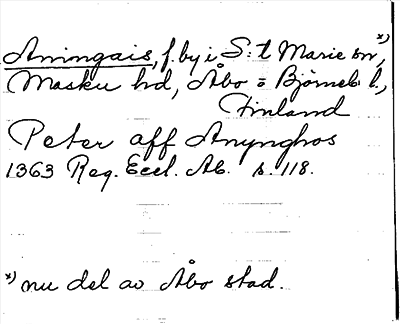 Aningais, f. by i S:t Marie sn, x)
Masku hd, Åbo o Björneb. l.,
Finland
Peter aff Anynghos
1363 Reg. Eccl. Ab. s. 118.
x) nu del av Åbo stad.